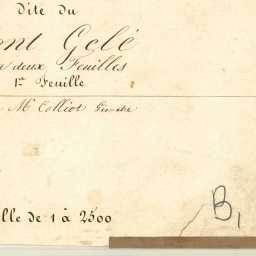 Dite du
ont Gelé
deux Feuilles
1re Feuille
Mr Colliot Géomètre
lle de 1 à 2500
B,